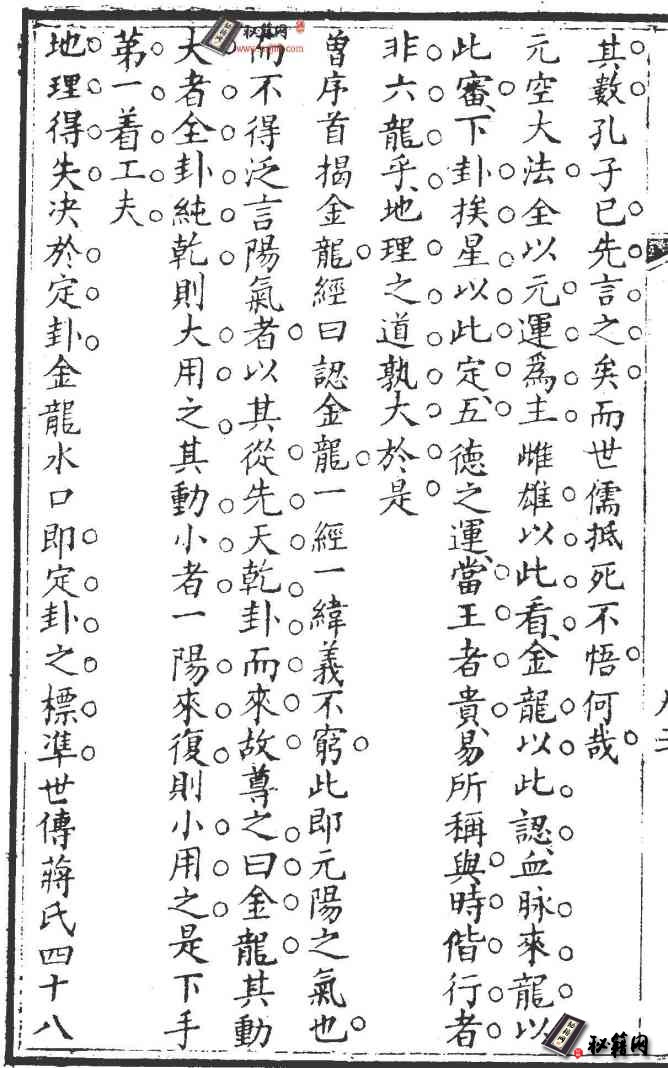 其數孔子已先言之矣而世儒抵死不悟何哉
元空大法全以元運爲主雌雄以此看金龍以此認血脉來龍以
此審下卦挨星以此定五德之運當王者貴易所稱與時偕行者
非六龍乎地理之道孰大於是
曾序首揭金龍經曰認金龍一經一緯義不窮此即元陽之氣也
而不得泛言陽氣者以其從先天乾卦而來故尊之曰金龍其動
大者全卦純乾則大用之其動小者一陽來復則小用之是下手
第一着工夫
地理得失决於定卦金龍水口即定卦之標準世傳蔣氏四十八
秘籍网
秘籍网